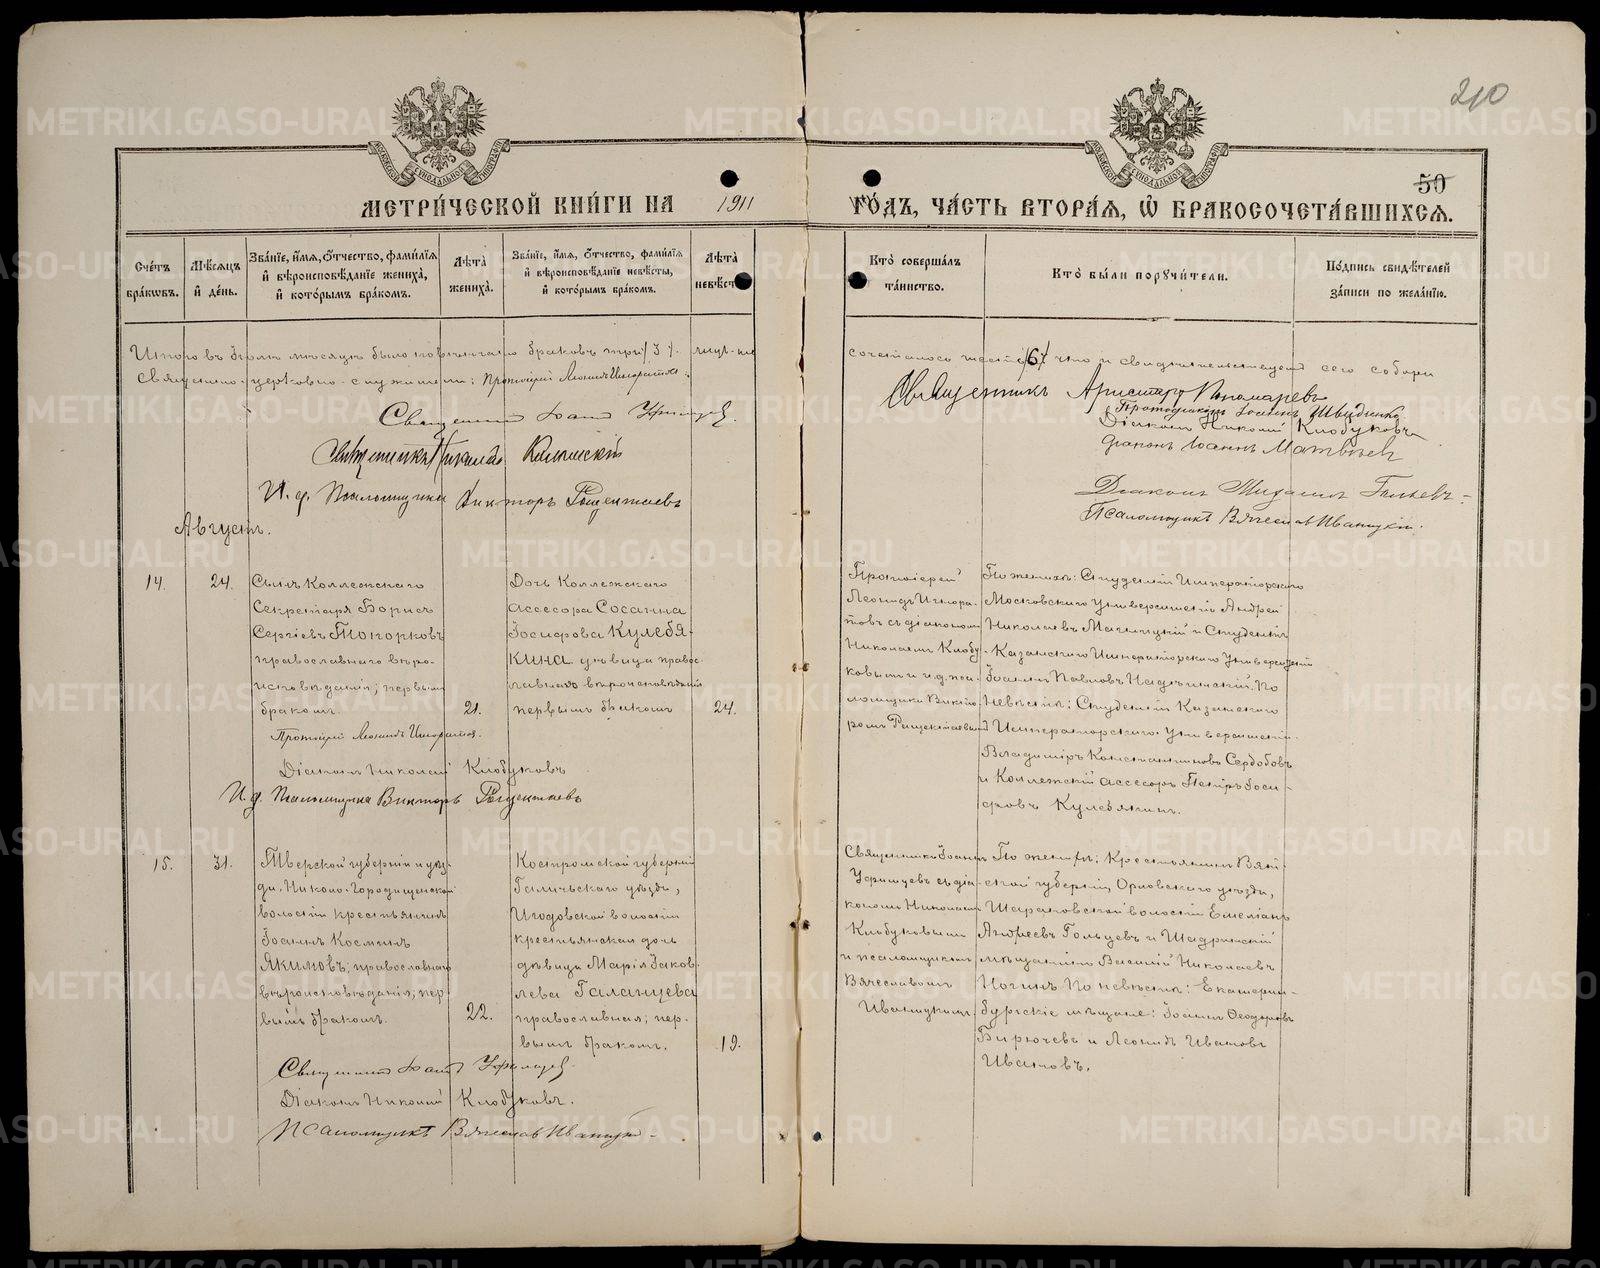 210
50
МЕТРИ́ЧЕСКОЙ КНИ́ГИ НА 1911 ГО́ДЪ, ЧА́СТЬ ВТОРА́Я, Ѡ҆ БРАКОСОЧЕТА́ВШИХСЯ.
Сче́тъ бра́кѡвъ.
Мѣ́сяцъ и҆ де́нь.
Зва́нїе, и҆́мя, о҆́тчество, фами́лїя и҆ вѣроисповѣ́данїе жениха̀, и҆ кото́рымъ бра́комъ.
Лѣ́та жениха̀.
Зва́нїе, и҆́мя, о҆́тчество, фами́лїя и҆ вѣроисповѣ́данїе невѣ́сты, и҆ кото́рымъ бра́комъ.
Лѣ́та невѣ́сты
Кто̀ соверша́лъ та́инство.
Кто̀ бы́ли порꙋчи́тели.
По́дпись свидѣ́телей за́писи по жела́нїю.
Итого въ Іюлѣ мѣсяцѣ было повѣнчано браковъ три /3/. лицъ-же
сочеталось шесть /6/ что и свидѣтельствуемъ сего собора
Священно-церковно-служители: Протоіерей Леонидъ Игноратовъ.
Священникъ Іоаннъ Уфимцевъ.
И. д. Псаломщика Викторъ Рещектаевъ
Священникъ Аристархъ Пономаревъ
Діаконъ Николай Клобуковъ
Діаконъ Іоаннъ Матвѣевъ
Діаконъ
Псаломщикъ Вячеславъ Иваницкій.
Августъ.
14.
24.
Сынъ Коллежскаго
Секретаря Борисъ
Сергіевъ Топорковъ
православнаго вѣро-
исповѣданія; первымъ
бракомъ.
21.
Дочь Коллежскаго
ассесора Сосанна
Іосифова Кулебя-
кина дѣвица правос-
лавнаго вѣроисповѣданія
первымъ бракомъ
24.
Протоіерей
Леонидъ Игнора-
товъ съ діакономъ
Николаемъ Клобу-
ковымъ и и.д. пса-
ломщика Викто-
ромъ Рещектаевымъ
По женихѣ: Студентъ Императорскаго
Московскаго Университета Андрей
Николаевъ Магницкій и Студентъ
Казанскаго Императорскаго Университета
Іоаннъ Павловъ Надежинскій. По
Невѣстѣ: Студентъ Казанскаго
Императорскаго Университета
Владиміръ Константиновъ Сердобовъ
и Коллежскій ассесоръ Петръ Іоси-
фовъ Кулебякинъ.
Протоіерей Леонидъ Игноратовъ.
Діаконъ Николай Клобуковъ
И. д. Псаломщика Викторъ Рещектаевъ
15.
31.
Тверской губерніи и уѣз-
да, Николо-Городищенской
волости крестьянинъ
Іоаннъ Косминъ
Якимовъ; православнаго
вѣроисповѣданія; пер-
вымъ бракомъ.
22.
Костромской губерніи
Галичьскаго уѣзда,
Игодовской волости
крестьянская дочь
дѣвица Марія Іаков-
лева Галанцева
православная; пер-
вымъ бракомъ.
19.
Священникъ Іоаннъ
Уфимцевъ съ діа-
кономъ Николаемъ
Клобуковымъ
и псаломщикомъ
Вячеславомъ
Иваницкимъ.
По женихѣ: Крестьянинъ Вят-
ской губерніи, Орловскаго уѣзда,
Шарановской волости Емеліанъ
Андреевъ Гольцевъ и Шадринскій
мѣщанинъ Василій Николаевъ
Ногинъ. По невѣстѣ: Екатерин-
бургскіе мѣщане: Іоаннъ Ѳеодоровъ
Бирючевъ и Леонидъ Ивановъ
Ивановъ.
Священникъ Іоаннъ Уфимцевъ.
Діаконъ Николай Клобуковъ.
Псаломщикъ Вячеславъ Иваницкій.
METRIKI.GASO-URAL.RU